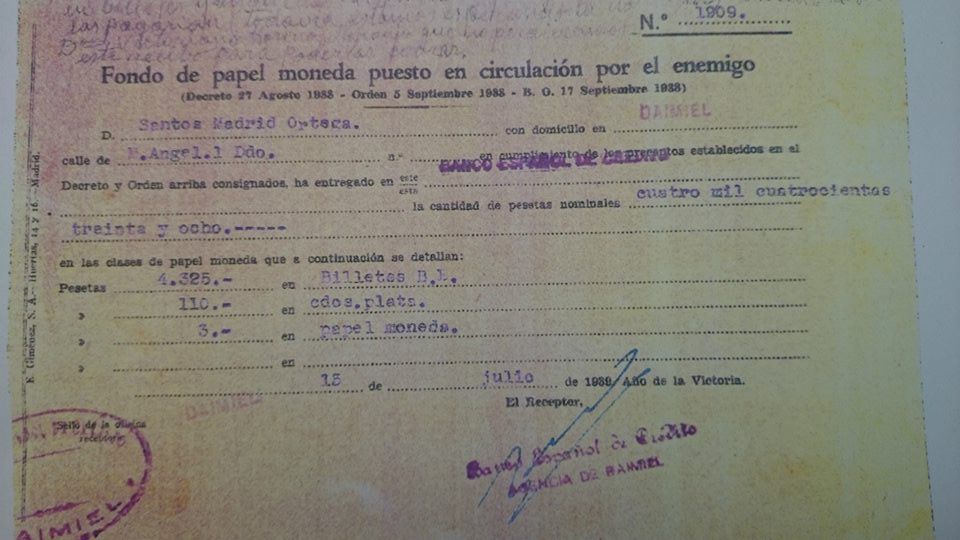 las pagarian todavia
N.º 1909.
este recibo para poderlas cobrar.
Fondo de papel moneda puesto en circulación por el enemigo
(Decreto 27 Agosto 1938 - Orden 5 Septiembre 1938 - B. O. 17 Septiembre 1938)
D. Santos Madrid Ortega. con domicilio en DAIMIEL
calle de M.Angel.1 Ddo. n.º en cumplimiento de los preceptos establecidos en el
BANCO ESPAÑOL DE CREDITO
Decreto y Orden arriba consignados, ha entregado en este esta
la cantidad de pesetas nominales cuatro mil cuatrocientas
treinta y ocho.-----
en las clases de papel moneda que a continuación se detallan:
Pesetas 4.325.- en Billetes B.E.
» 110.- en cdos.plata.
» 3.- en papel moneda.
» en
13 de julio de 1939. Año de la Victoria.
El Receptor,
DAIMIEL
Sello de la oficina
receptora
Banco Español de Crédito
AGENCIA DE DAIMIEL
DAIMIEL.
E. Giménez, S. A.- Huertas, 14 y 16.- Madrid.